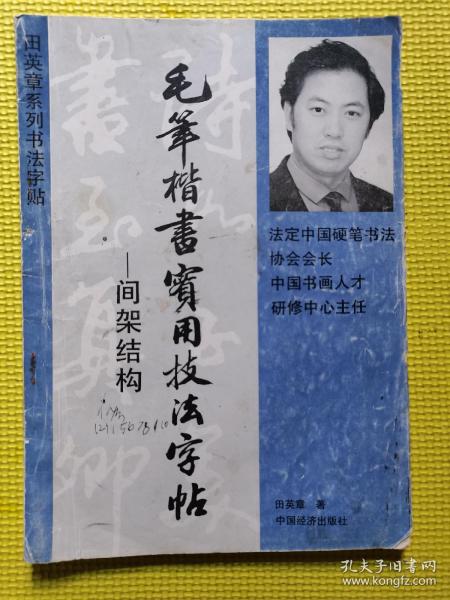 田英章系列书法字贴
毛筆楷書實用技法字帖
—间架结构
法定中国硬笔书法
协会会长
中国书画人才
研修中心主任
田英章 著
中国经济出版社
孔夫子旧书网
www.kongfz.com